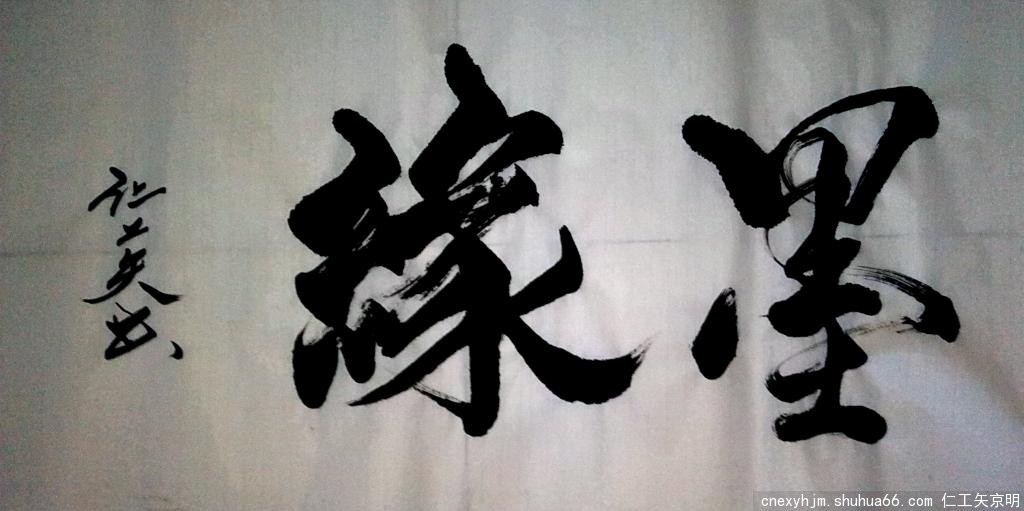 墨緣
仁工矢书
cnexyhjm.shuhua66.com 仁工矢京明